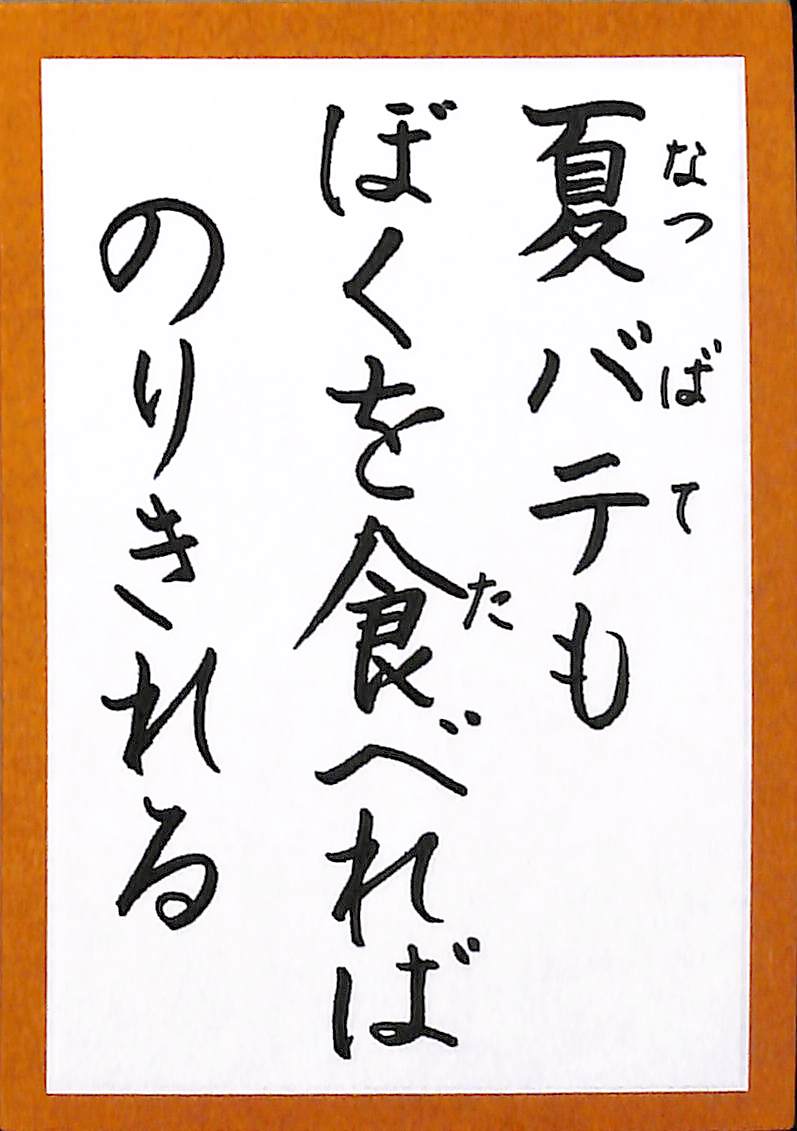 夏バテも
なつばて
ぼくを食べれば
た
のりきれる